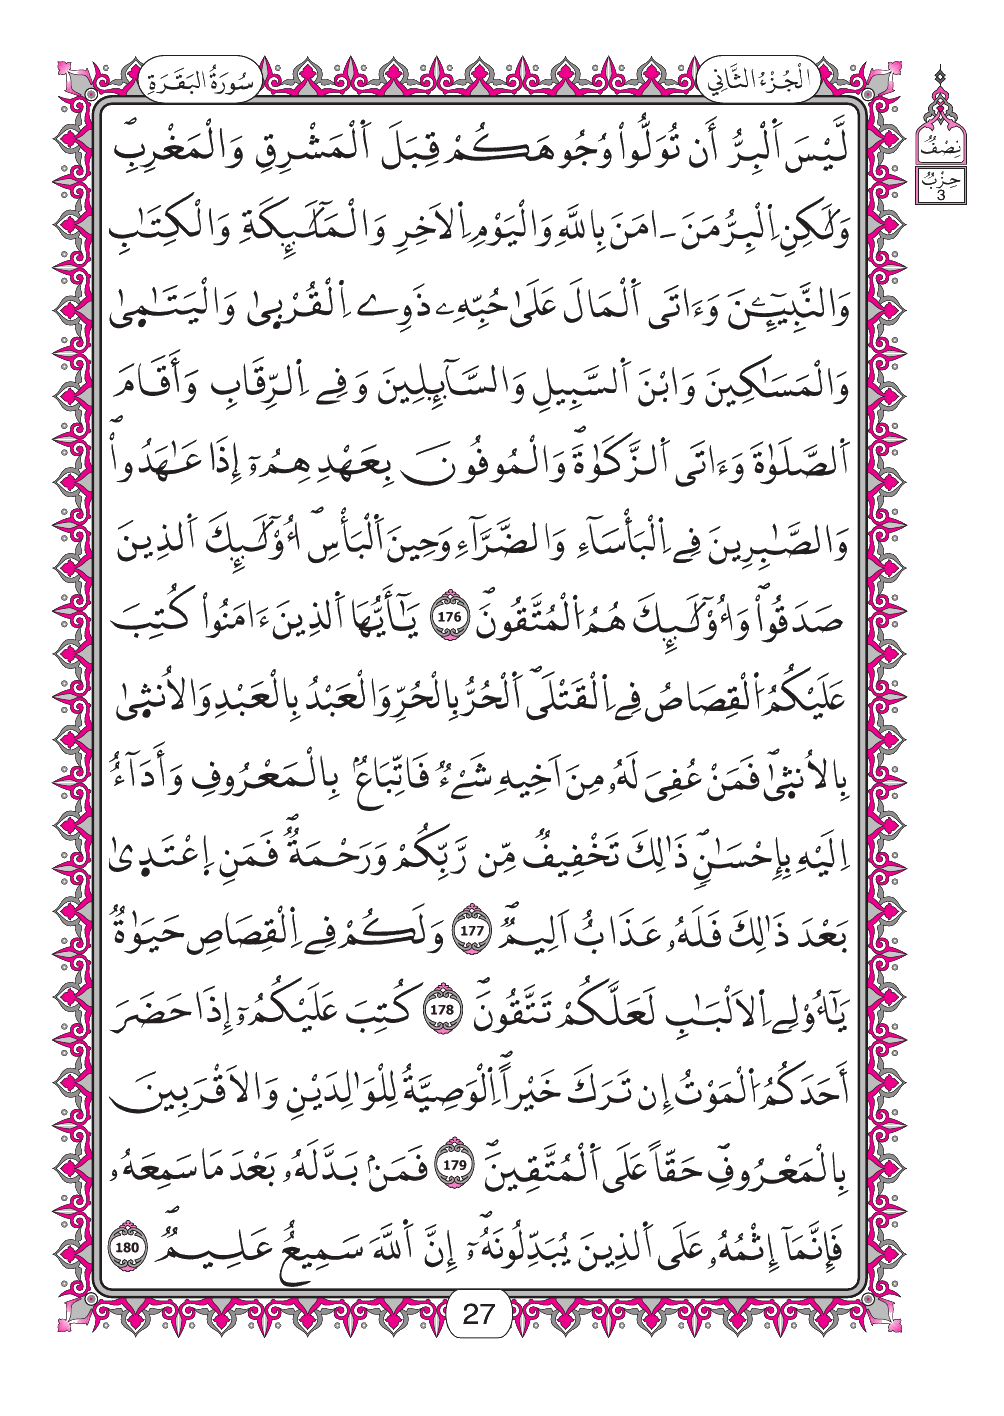 سُورَةُ البَقَرَةِ
الْجُزْءُ الثَّانِي
نِصْفُ
حِزْبُ
3
لَّيْسَ اَ۬لْبِرُّ أَن تُوَلُّواْ وُجُوهَكُمْ قِبَلَ اَ۬لْمَشْرِقِ وَالْمَغْرِبِۖ
وَلَٰكِنِ اِ۬لْبِرُّ مَنَ ـ امَنَ بِاللَّهِ وَالْيَوْمِ اِ۬لَاخِرِ وَالْمَلَٰٓئِكَةِ وَالْكِتَٰبِ
وَالنَّبِيٓـِٕۧنَ وَءَاتَى اَ۬لْمَالَ عَلَىٰ حُبِّهِۦ ذَوِے اِ۬لْقُرْب۪ىٰ وَالْيَتَٰم۪ىٰ
وَالْمَسَٰكِينَ وَابْنَ اَ۬لسَّبِيلِ وَالسَّآئِلِينَ وَفِے اِ۬لرِّقَابِ وَأَقَامَ
اَ۬لصَّلَوٰةَ وَءَاتَى اَ۬لزَّكَوٰةَۖ وَالْمُوفُونَ بِعَهْدِهِمُۥٓ إِذَا عَٰهَدُواْۖ
وَالصَّٰبِرِينَ فِے اِ۬لْبَأْسَآءِ وَالضَّرَّآءِ وَحِينَ اَ۬لْبَأْسِۖ أُوْلَٰٓئِكَ اَ۬لذِينَ
صَدَقُواْۖ وَأُوْلَٰٓئِكَ هُمُ اُ۬لْمُتَّقُونَۖ 176 يَٰٓأَيُّهَا اَ۬لذِينَ ءَامَنُواْ كُتِبَ
عَلَيْكُمُ اُ۬لْقِصَاصُ فِے اِ۬لْقَتْلَىۖ اَ۬لْحُرُّ بِالْحُرِّ وَالْعَبْدُ بِالْعَبْدِ وَالُانث۪ىٰ
بِالُانث۪ىٰۖ فَمَنْ عُفِيَ لَهُۥ مِنَ اَخِيهِ شَےْءٞ فَاتِّبَاعُۢ بِالْمَعْرُوفِ وَأَدَآءٌ
اِلَيْهِ بِإِحْسَٰنٖۖ ذَٰلِكَ تَخْفِيفٞ مِّن رَّبِّكُمْ وَرَحْمَةٞۖ فَمَنِ اِ۪عْتَد۪ىٰ
بَعْدَ ذَٰلِكَ فَلَهُۥ عَذَابٌ اَلِيمٞۖ 177 وَلَكُمْ فِے اِ۬لْقِصَاصِ حَيَوٰةٞ
يَٰٓأُوْلِے اِ۬لَالْبَٰبِ لَعَلَّكُمْ تَتَّقُونَۖ 178 كُتِبَ عَلَيْكُمُۥٓ إِذَا حَضَرَ
أَحَدَكُمُ اُ۬لْمَوْتُ إِن تَرَكَ خَيْراًۖ اِ۬لْوَصِيَّةُ لِلْوَٰلِدَيْنِ وَالَاقْرَبِينَ
بِالْمَعْرُوفِۖ حَقّاً عَلَى اَ۬لْمُتَّقِينَۖ 179 فَمَنۢ بَدَّلَهُۥ بَعْدَ مَا سَمِعَهُۥ
فَإِنَّمَآ إِثْمُهُۥ عَلَى اَ۬لذِينَ يُبَدِّلُونَهُۥٓۖ إِنَّ اَ۬للَّهَ سَمِيعٌ عَلِيمٞۖ 180
27